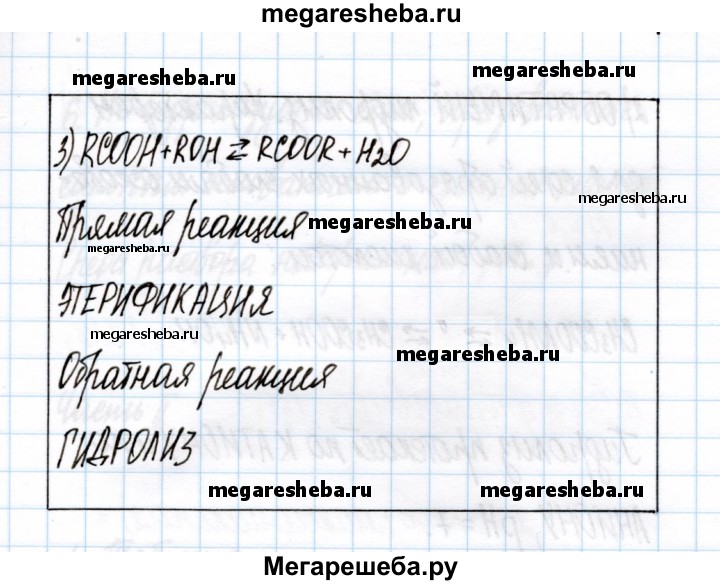 megaresheba.ru
megaresheba.ru megaresheba.ru
3) RCOOH+ROH ⇄ RCOOR+H2O
megaresheba.ru
Прямая реакция megaresheba.ru
megaresheba.ru
ЭТЕРИФИКАЦИЯ
megaresheba.ru
megaresheba.ru
Обратная реакция
ГИДРОЛИЗ
megaresheba.ru megaresheba.ru
Мегарешеба.ру